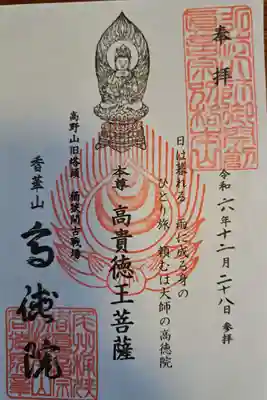 奉拝
令和六年十二月二十八日 参拝
日は暮れる 雨に成る身の
ひとり旅 頼むは大師の高徳院
本尊 高貴徳王菩薩
高野山旧塔頭 価展開古戦場
香華山
高徳院